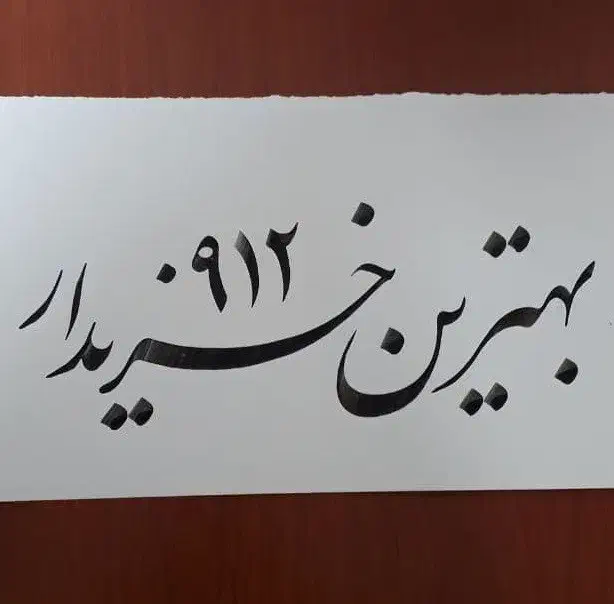 بهترین خریدار ۰۹۱۲